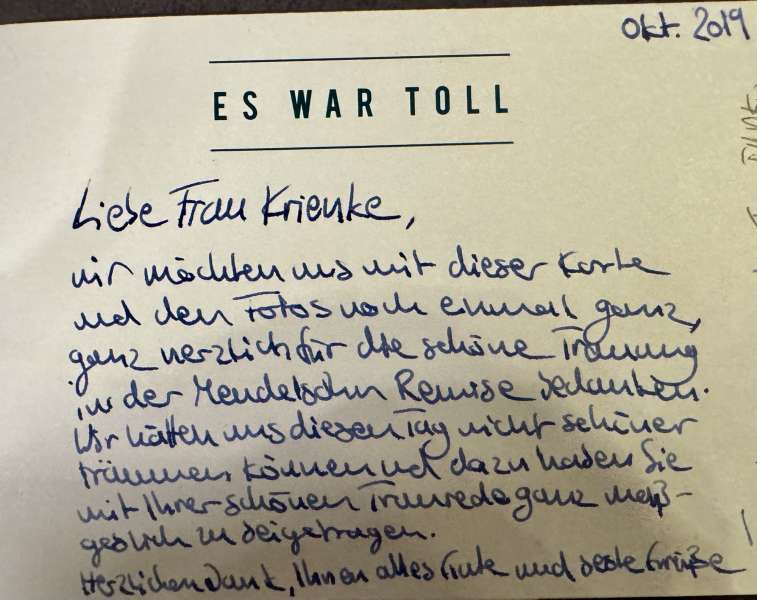 Okt. 2019
ES WAR TOLL
Liebe Frau Krienke,
wir möchten uns mit dieser Karte
und den Fotos noch einmal ganz,
ganz herzlich für die schöne Trauung
in der Mendelsohn Remise bedanken.
Wir hätten uns diesen Tag nicht schöner
träumen können und dazu haben Sie
mit Ihrer schönen Traurede ganz maß-
geblich zu beigetragen.
Herzlichen Dank, Ihnen alles Gute und beste Grüße